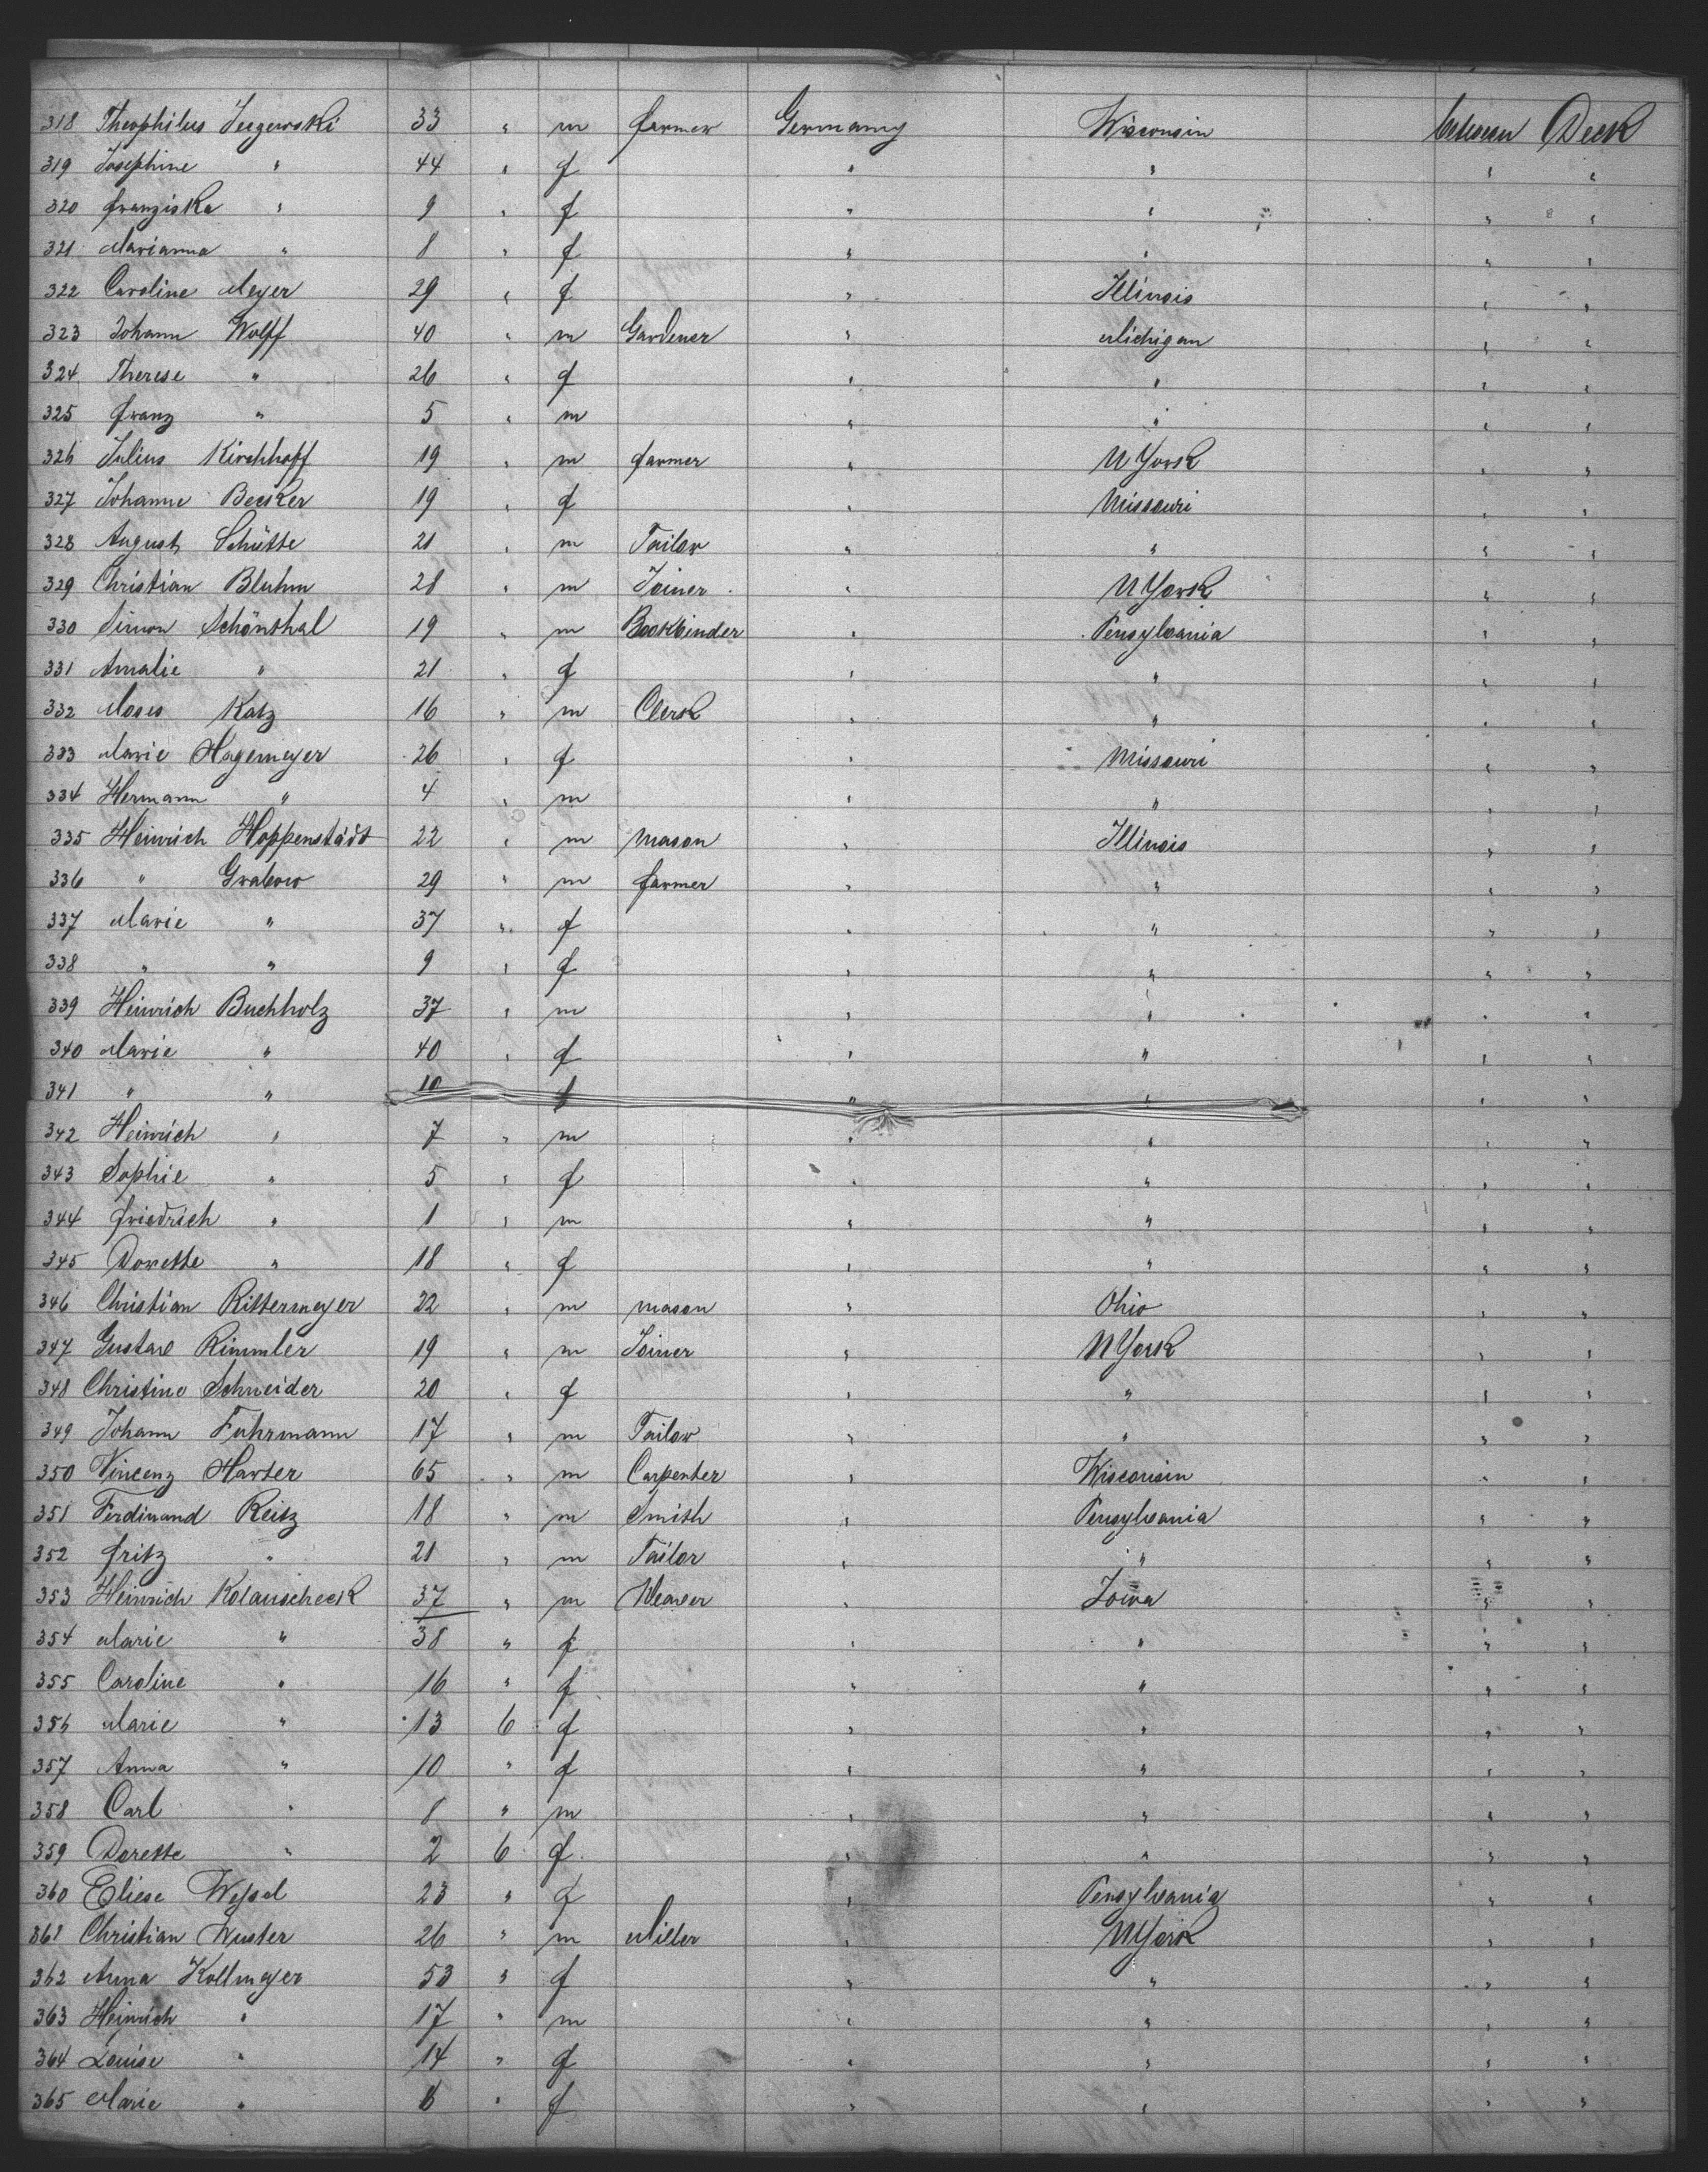 318 Theophilus Jezewski 33 " m farmer Germany Wisconsin between Deck
319 Josephine " 44 " f " " " "
320 Franziska " 9 " f " " " "
321 Marianna " 8 " f " " " "
322 Caroline Meyer 29 " f " Illinois " "
323 Johann Wolff 40 " m Gardener " Michigan " "
324 Therese " 26 " f " " " "
325 Franz " 5 " m " " " "
326 Julius Kirchhoff 19 " m farmer " N York " "
327 Johanne Becker 19 " f " Missouri " "
328 August Schütte 21 " m Tailor " " " "
329 Christian Bluhm 28 " m Joiner " N York " "
330 Simon Schönthal 19 " m Bookbinder " Pensylvania " "
331 Amalie " 21 " f " " " "
332 Moses Katz 16 " m Clerk " " " "
333 Marie Hagemeyer 26 " f " Missouri " "
334 Hermann " 4 " m " " " "
335 Heinrich Hoppenstädt 22 " m mason " Illinois " "
336 " Grabow 29 " m farmer " " " "
337 Marie " 37 " f " " " "
338 " " 9 " f " " " "
339 Heinrich Buchholz 37 " m " " " "
340 Marie " 40 " f " " " "
341 " " 10 f " " " "
342 Heinrich " 7 " m " " " "
343 Sophie " 5 " f " " " "
344 Friedrich " 1 " m " " " "
345 Dorette " 18 " f " " " "
346 Christian Rittermeyer 22 " m mason " Ohio " "
347 Gustav Rimmler 19 " m Joiner " N York " "
348 Christine Schneider 20 " f " " " "
349 Johann Fuhrmann 17 " m Tailor " " " "
350 Vincenz Harter 65 " m Carpenter " Wisconsin " "
351 Ferdinand Reitz 18 " m Smith " Pensylvania " "
352 Fritz " 21 " m Tailor " " " "
353 Heinrich Kolauscheck 37 " m Weaver " Iowa " "
354 Marie " 38 " f " " " "
355 Caroline " 16 " f " " " "
356 Marie " 13 6 f " " " "
357 Anna " 10 " f " " " "
358 Carl " 8 " m " " " "
359 Dorette " 2 6 f " " " "
360 Eliese Wessel 23 " f " Pensylvania " "
361 Christian Wuster 26 " m Miller " N York " "
362 Anna Kollmeyer 53 " f " " " "
363 Heinrich " 17 " m " " " "
364 Louise " 14 " f " " " "
365 Marie " 6 " f " " " "